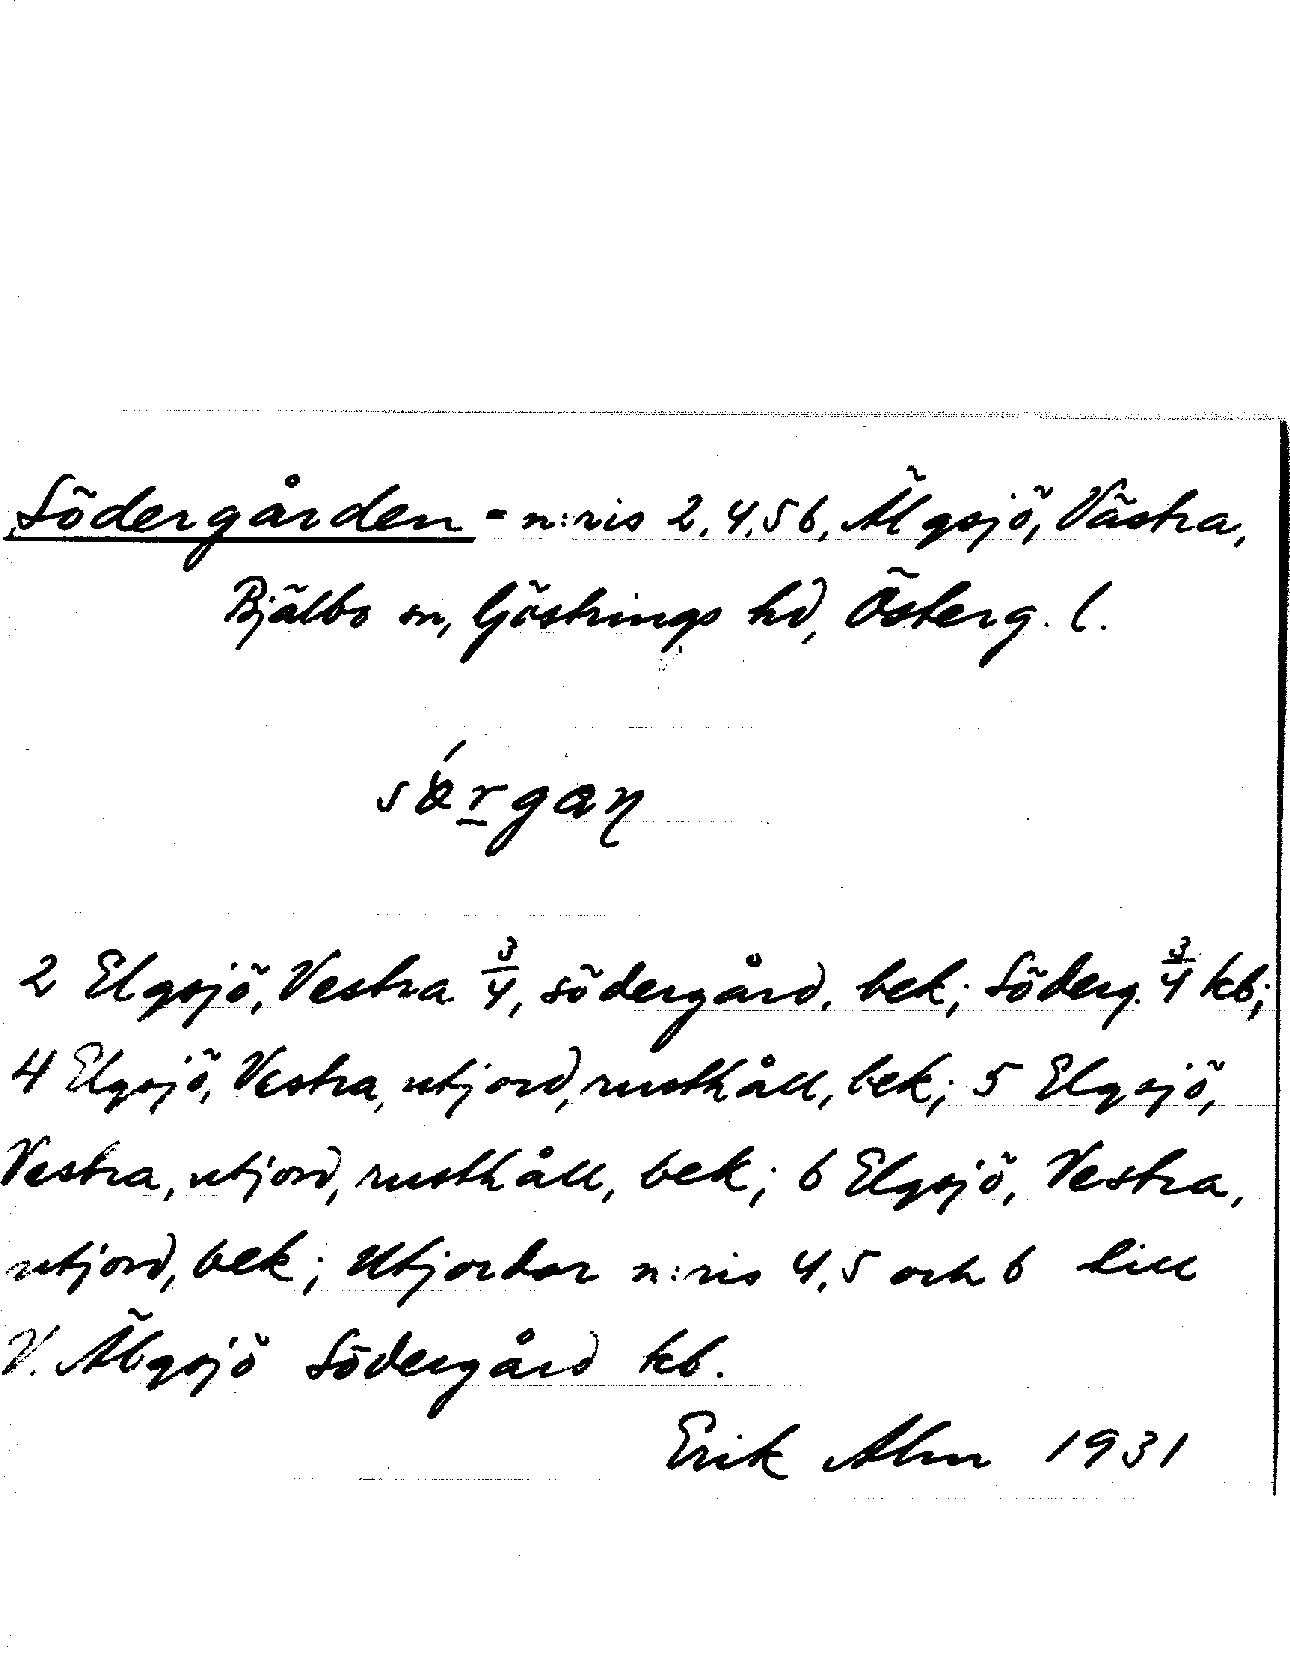 Södergården = n:ris 2, 4, 5 6, Älgsjö, Västra,
Bjälbo sn, Göstrings hd, Österg. l.
2 Elgsjö, Vestra 3/4, södergård, bek; Söderg. 3/4 kb;
4 Elgsjö, Vestra, utjord, rusthåll, bek; 5 Elgsjö,
Vestra, utjord, rusthåll, bek; 6 Elgsjö, Vestra,
utjord, bek; Utjordar n:ris 4, 5 och 6 till
V. Älgsjö Södergård kb.
Erik Alm 1931